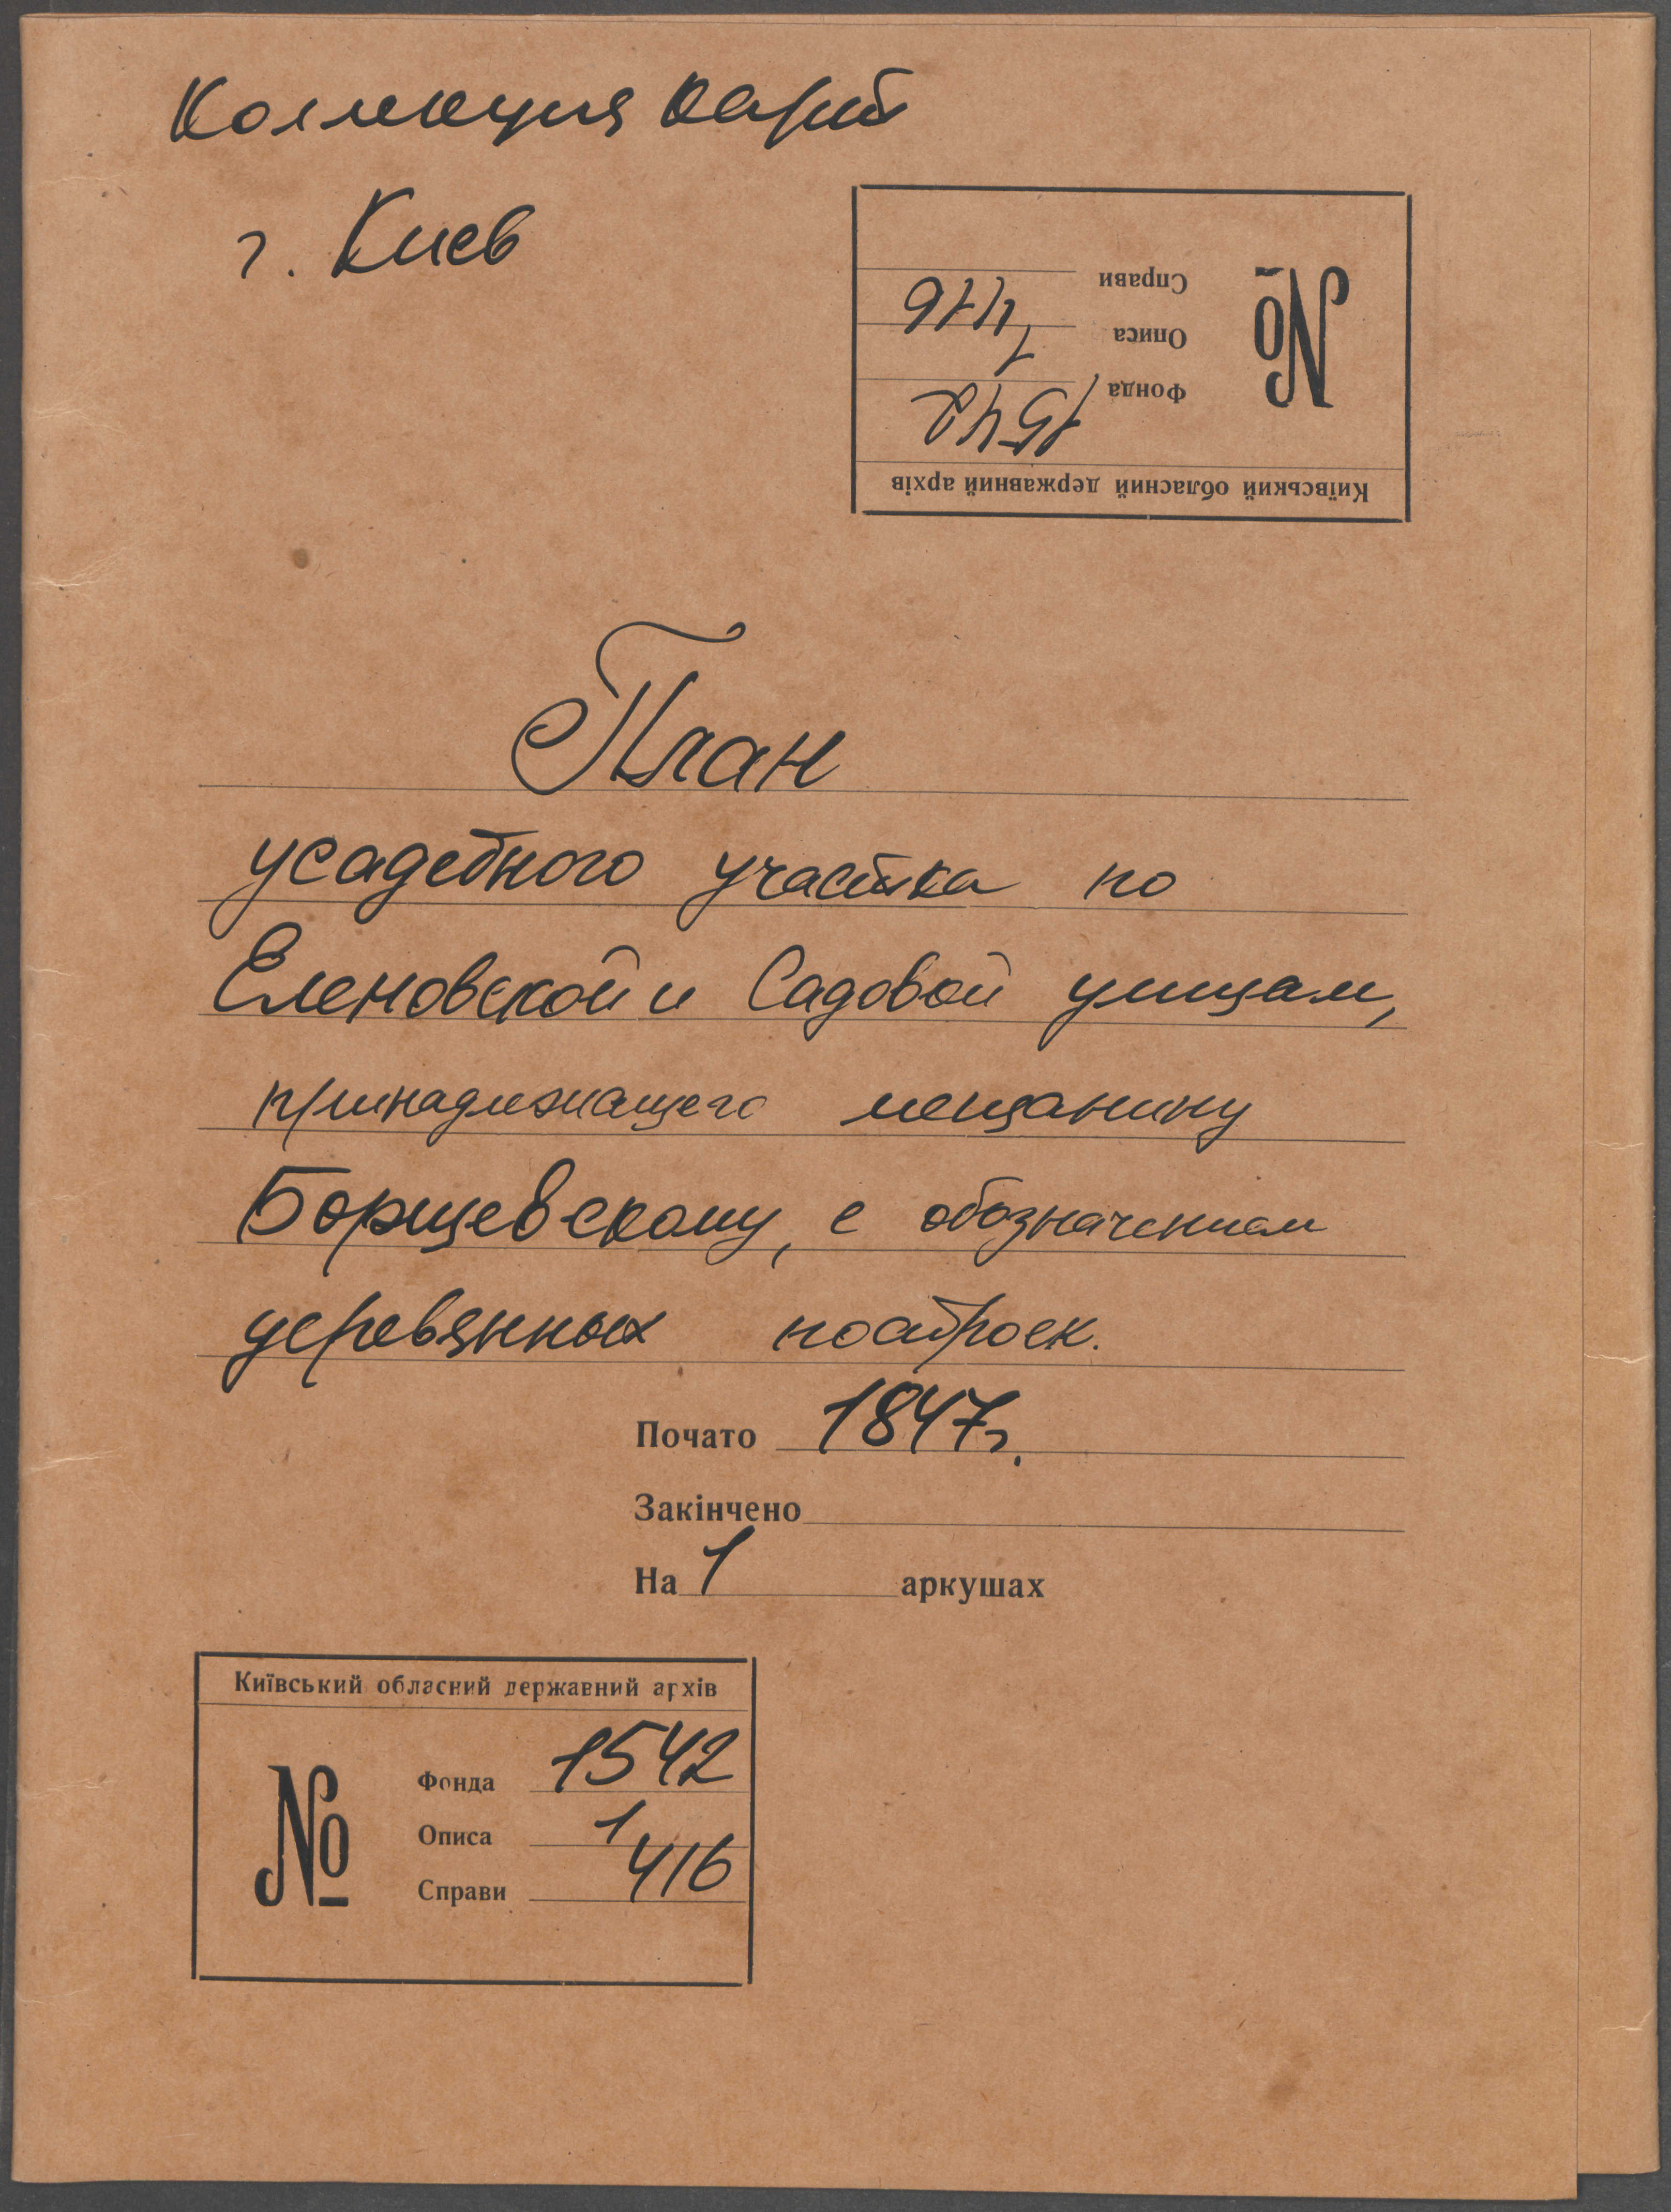 Коллекция карт
г. Киев
Київський обласний державний архів
№
Фонда 1542
Описа 1
Справи 416
План
усадебного участка по
Еленовской и Садовой улицам,
принадлежащего мещанину
Борщевскому, с обозначением
деревянных построек.
Почато 1847г.
Закінчено
На 1 аркушах
Київський обласний державний архів
№
Фонда 1542
Описа 1
Справи 416